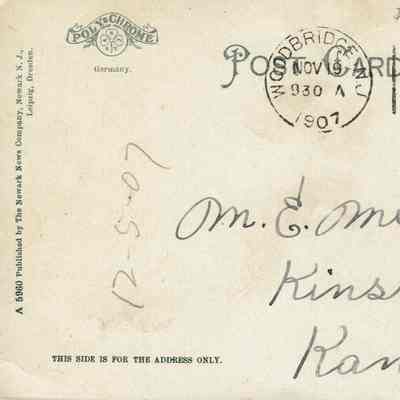 POLY-CHROME
Germany.
POST CARD
WOODBRIDGE N J
NOV 19
930 A
1907
A 5960 Published by The Newark News Company, Newark N. J.,
Leipzig, Dresden.
12-5-07
M. E. Me
Kins
Kan
THIS SIDE IS FOR THE ADDRESS ONLY.